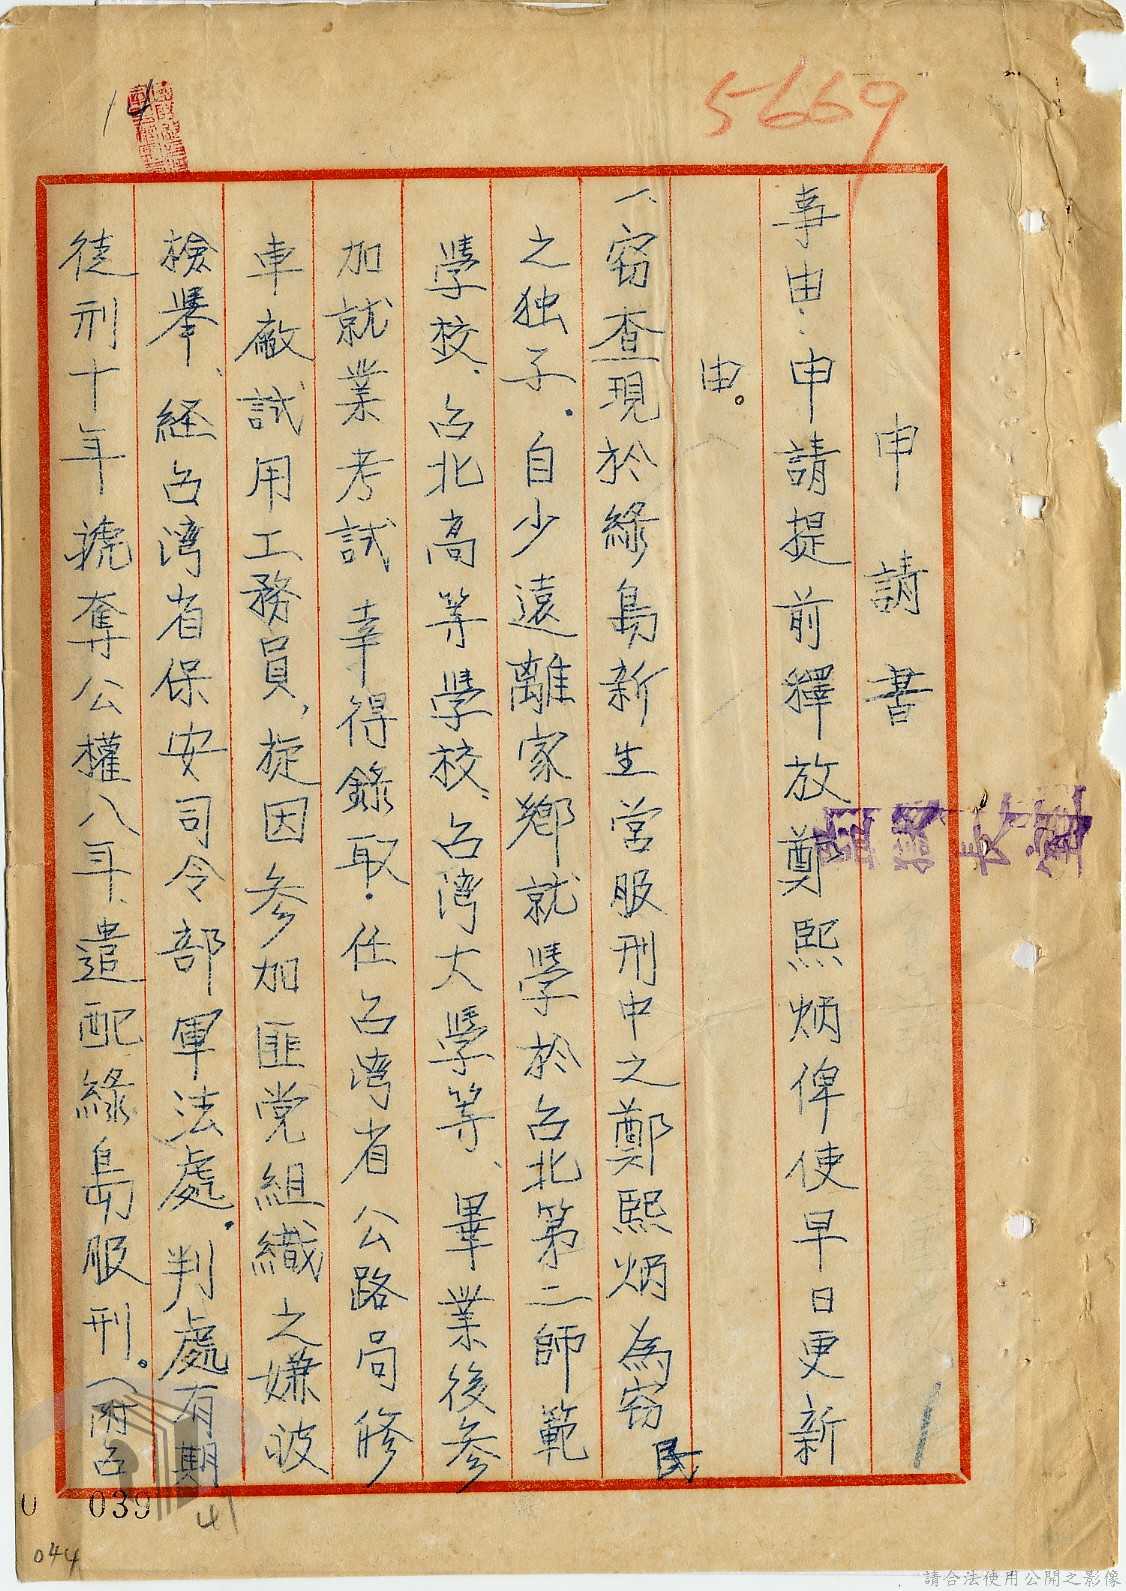 5669
14
申請書
事由：申請提前釋放鄭熙炳俾使早日更新
由。
一、窃查現於綠島新生営服刑中之鄭熙炳為窃民
之独子．自少遠離家鄉就學於台北第二師範
學校、台北高等學校、台湾大學等、畢業後参
加就業考試 幸得錄取．任台湾省公路局修
車廠試用工務員，旋因参加匪党組織之嫌被
檢舉、経台湾省保安司令部軍法處．判處有期
徒刑十年褫奪公權八年、遣配綠島服刑。（附台
039
41
044
請合法使用公開之影像